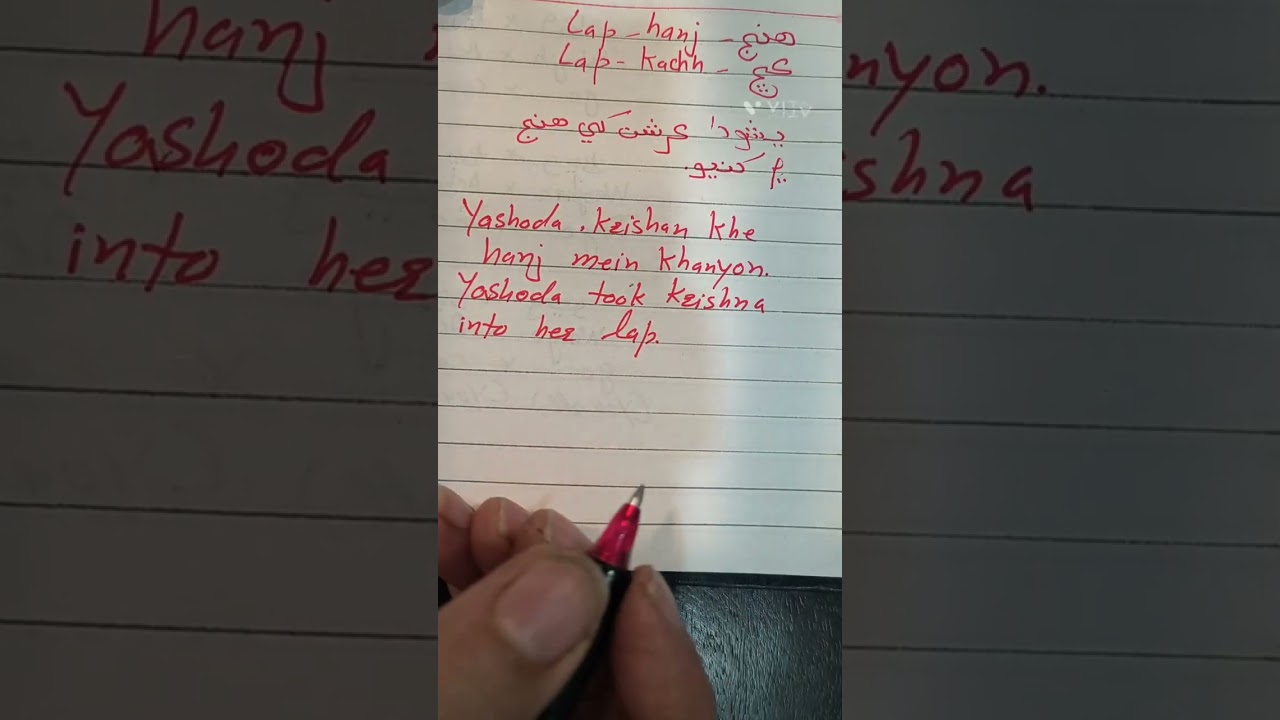 Lap - hanj - هنج
Lap - Kachh - ڪڇ
يشودا ڪرشن کي هنج
۾ کنيو.
Yashoda. Krishan khe
hanj mein khanyon.
Yashoda took Krishna
into her lap.